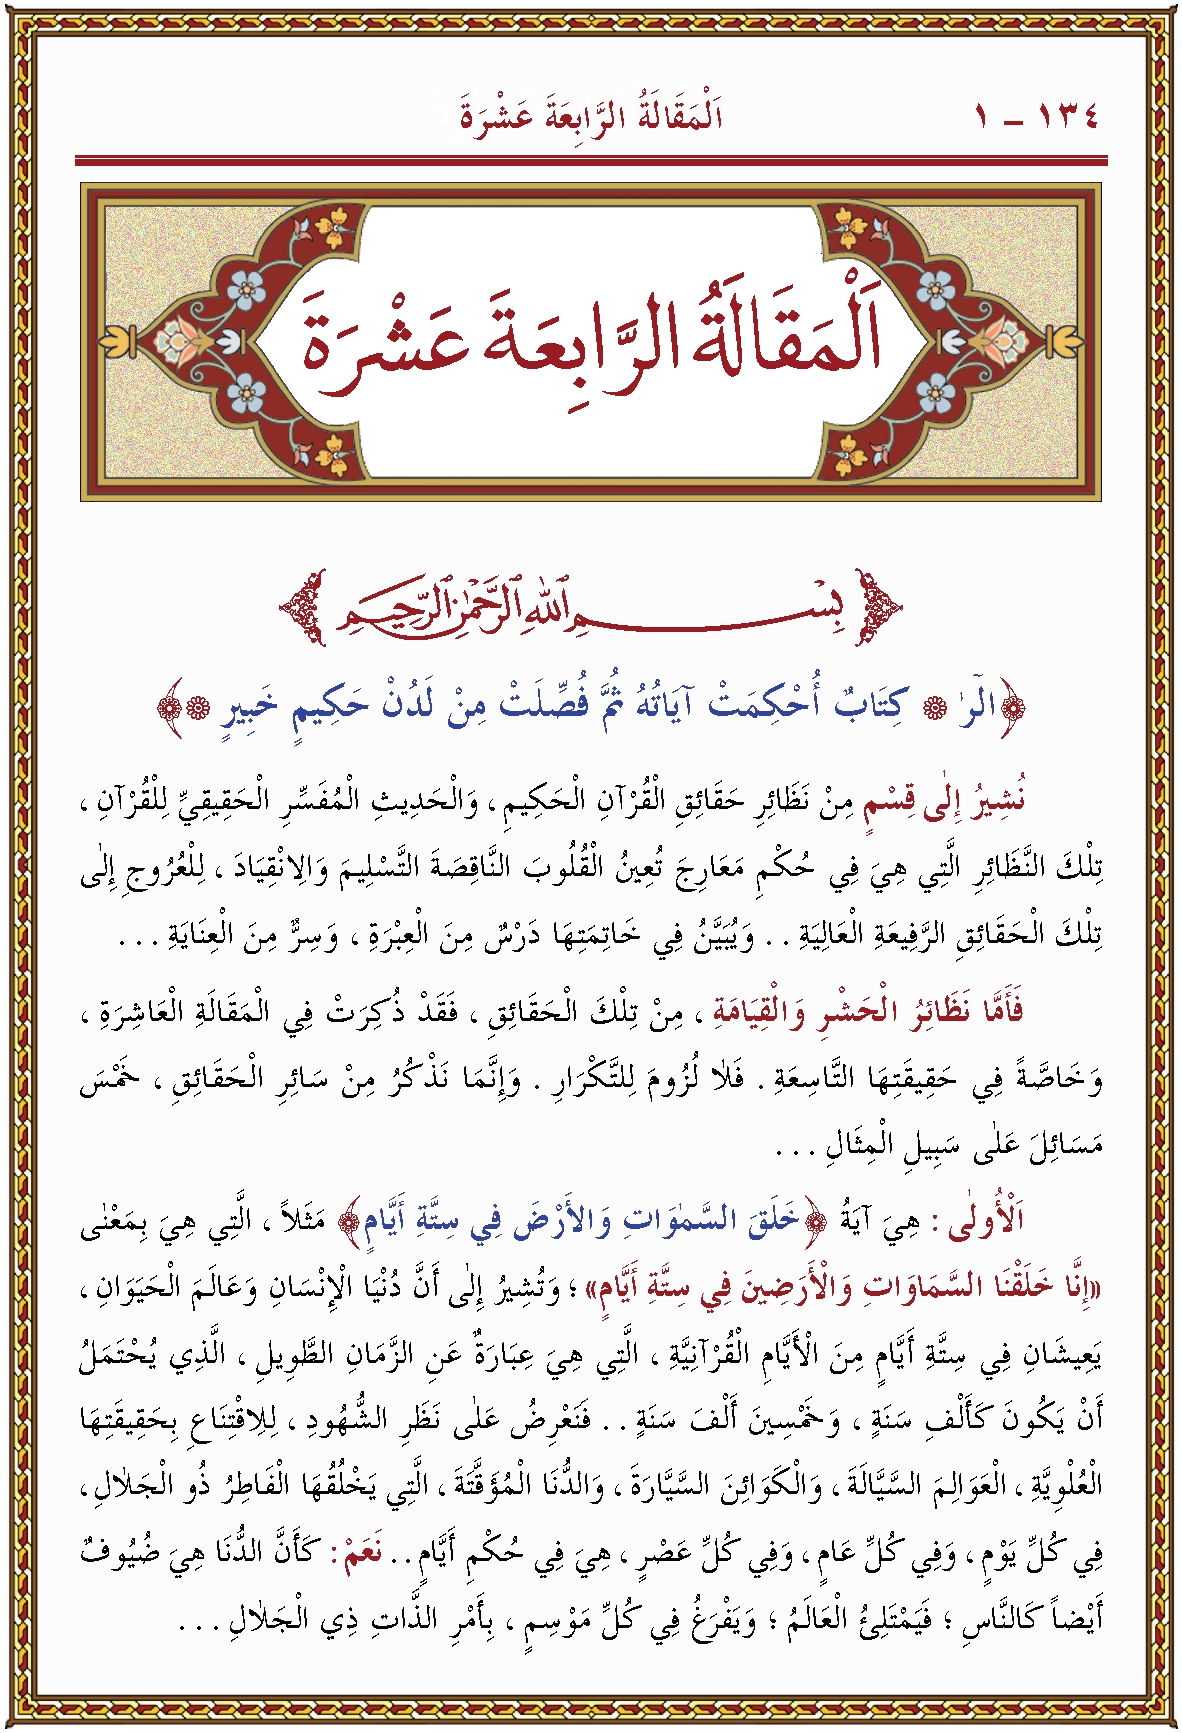 ١٣٤ – ١ اَلْمَقَالَةُ الرَّابِعَةَ عَشْرَةَ
اَلْمَقَالَةُ الرَّابِعَةَ عَشْرَةَ
بِسْمِ اللهِ الرَّحْمٰنِ الرَّحِيمِ
﴿الٓرٰ ۞ كِتَابٌ أُحْكِمَتْ آيَاتُهُ ثُمَّ فُصِّلَتْ مِنْ لَدُنْ حَكِيمٍ خَبِيرٍ ۞﴾
نُشِيرُ إِلٰى قِسْمٍ مِنْ نَظَائِرِ حَقَائِقِ الْقُرْآنِ الْحَكِيمِ ، وَالْحَدِيثِ الْمُفَسِّرِ الْحَقِيقِيِّ لِلْقُرْآنِ ،
تِلْكَ النَّظَائِرِ الَّتِي هِيَ فِي حُكْمِ مَعَارِجَ تُعِينُ الْقُلُوبَ النَّاقِصَةَ التَّسْلِيمَ وَالِانْقِيَادَ ، لِلْعُرُوجِ إِلٰى
تِلْكَ الْحَقَائِقِ الرَّفِيعَةِ الْعَالِيَةِ . . وَيُبَيَّنُ فِي خَاتِمَتِهَا دَرْسٌ مِنَ الْعِبْرَةِ ، وَسِرٌّ مِنَ الْعِنَايَةِ . . .
فَأَمَّا نَظَائِرُ الْحَشْرِ وَالْقِيَامَةِ ، مِنْ تِلْكَ الْحَقَائِقِ ، فَقَدْ ذُكِرَتْ فِي الْمَقَالَةِ الْعَاشِرَةِ ،
وَخَاصَّةً فِي حَقِيقَتِهَا التَّاسِعَةِ . فَلَا لُزُومَ لِلتَّكْرَارِ . وَإِنَّمَا نَذْكُرُ مِنْ سَائِرِ الْحَقَائِقِ ، خَمْسَ
مَسَائِلَ عَلٰى سَبِيلِ الْمِثَالِ . . .
اَلْأُولٰى : هِيَ آيَةُ ﴿خَلَقَ السَّمٰوَاتِ وَالْأَرْضَ فِي سِتَّةِ أَيَّامٍ﴾ مَثَلاً ، الَّتِي هِيَ بِمَعْنٰى
«إِنَّا خَلَقْنَا السَّمَاوَاتِ وَالْأَرَضِينَ فِي سِتَّةِ أَيَّامٍ» ؛ وَتُشِيرُ إِلٰى أَنَّ دُنْيَا الْإِنْسَانِ وَعَالَمَ الْحَيَوَانِ ،
يَعِيشَانِ فِي سِتَّةِ أَيَّامٍ مِنَ الْأَيَّامِ الْقُرْآنِيَّةِ ، الَّتِي هِيَ عِبَارَةٌ عَنِ الزَّمَانِ الطَّوِيلِ ، الَّذِي يُحْتَمَلُ
أَنْ يَكُونَ كَأَلْفِ سَنَةٍ ، وَخَمْسِينَ أَلْفَ سَنَةٍ . . فَنَعْرِضُ عَلٰى نَظَرِ الشُّهُودِ ، لِلِاقْتِنَاعِ بِحَقِيقَتِهَا
الْعُلْوِيَّةِ ، الْعَوَالِمَ السَّيَّالَةَ ، وَالْكَوَائِنَ السَّيَّارَةَ ، وَالدُّنَا الْمُؤَقَّتَةَ ، الَّتِي يَخْلُقُهَا الْفَاطِرُ ذُو الْجَلَالِ ،
فِي كُلِّ يَوْمٍ ، وَفِي كُلِّ عَامٍ ، وَفِي كُلِّ عَصْرٍ ، هِيَ فِي حُكْمِ أَيَّامٍ . . نَعَمْ : كَأَنَّ الدُّنَا هِيَ ضُيُوفٌ
أَيْضاً كَالنَّاسِ ؛ فَيَمْتَلِئُ الْعَالَمُ ؛ وَيَفْرَغُ فِي كُلِّ مَوْسِمٍ ، بِأَمْرِ الذَّاتِ ذِي الْجَلَالِ . . .